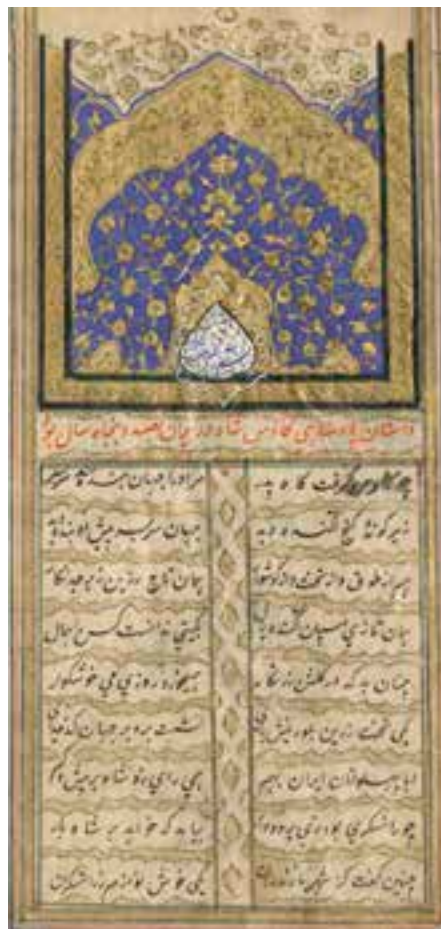 داستان پادشاهی کاوس شاه در جهان صد و پنجاه سال بود
چو کاوس بگرفت گاه پدر مر اورا جهان بنده شد سربسر
زهر گونۀ گنج آکنده دید جهان سربسر پیش خود بنده دید
هم از طوق و از تخت و از گوشوار همان تاج زرین زبرجد نگار
همان تازی اسپان آکنده یال بگیتی ندانست کس همال
چنان بد که در گلشن زرنگار همیخورد روزی می خوشگوار
یکی تخت زرین بلورینش پای نشست بروبر جهان کدخدای
ابا پهلوانان ایران بهم همی رای زد شاه بر بیش و کم
چو رامشگری دیو زی پرده دار بیامد که خواهد بر شاه بار
چنین گفت کز شهر مازندران یکی خوش نوازم ز رامشگران